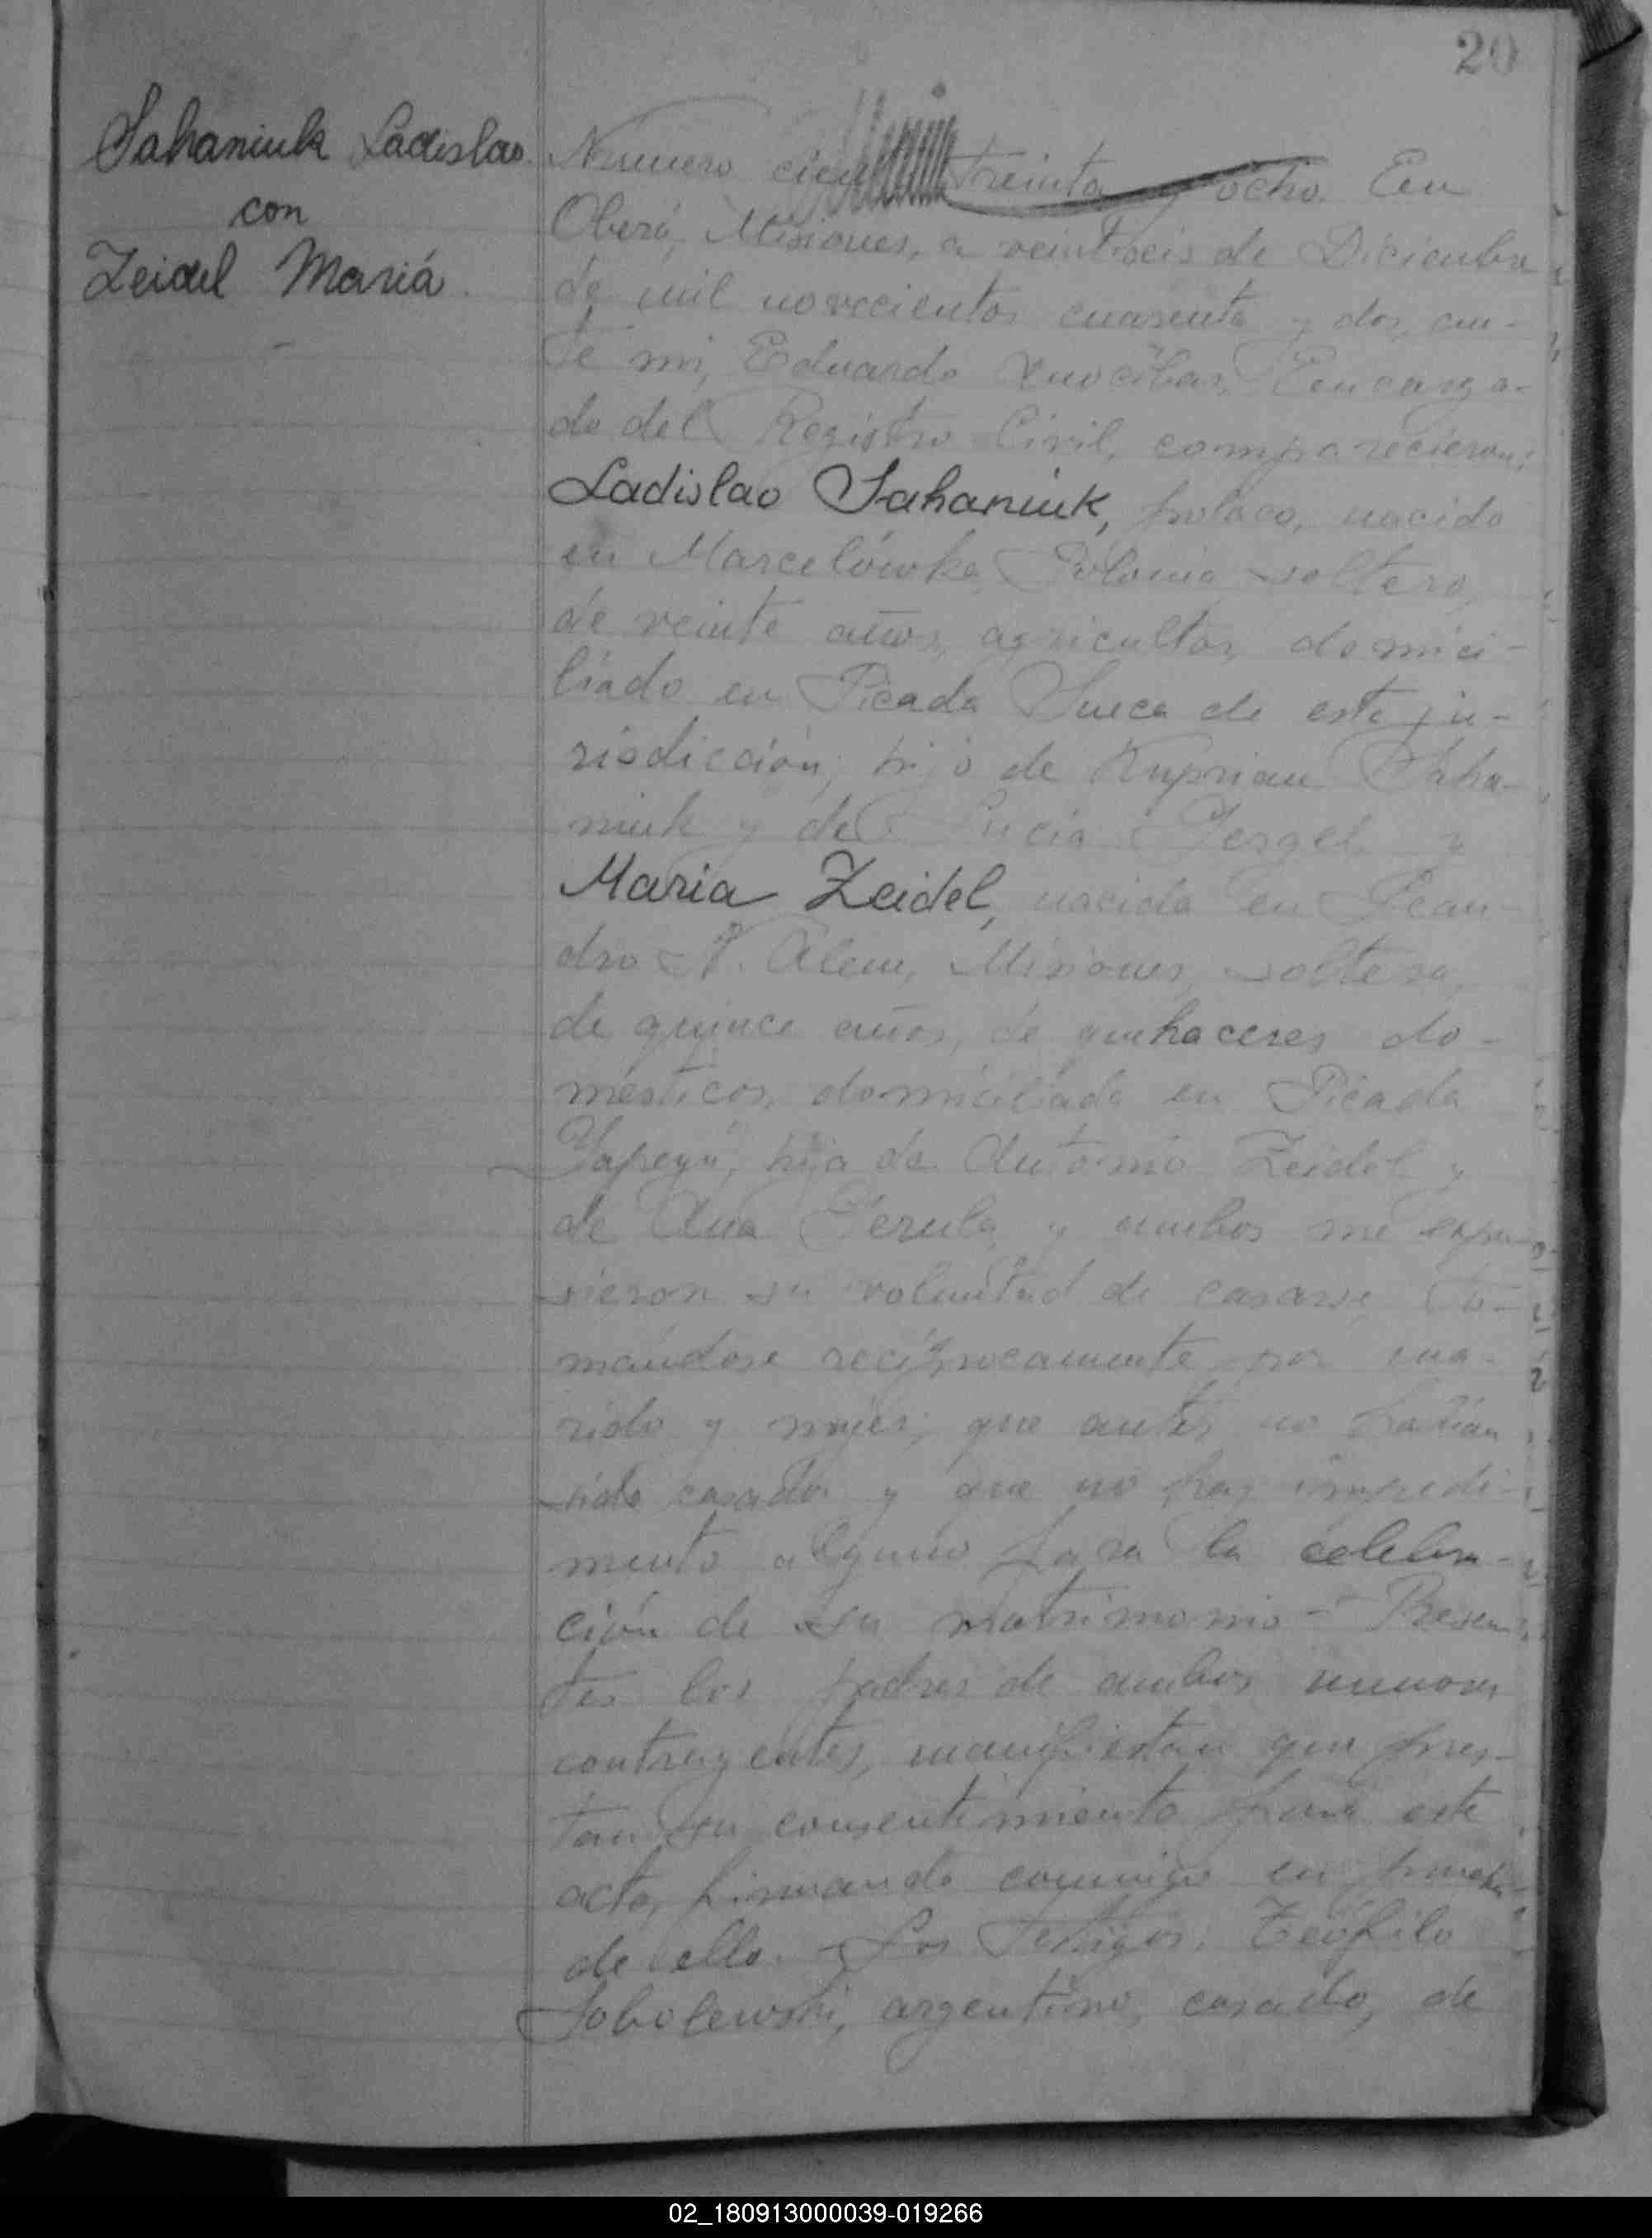 20
Sahaniuk Ladislao
con
Zeidel Mariá
Número cien treinta y ocho. En
Oberá, Misiones, a veintiseis de Diciembre
de mil novecientos cuarenta y dos, an-
te mi, Eduardo Encarga-
do del Registro Civil, comparecieron:
Ladislao Sahaniuk, polaco, nacido
en Marcelówka, Polonia, soltero,
de veinte años, agricultor, domici-
liado en Picada Sueca de esta ju-
risdicción, hijo de Kuprian Saha-
niuk y de Lucia y
Maria Zeidel, nacida en Lean-
dro N. Alem, Misiones, soltera,
de quince años, de quehaceres do-
mésticos, domiciliada en Picada
Yapeyú, hija de Antonio Zeidel y
de Ana y ambos me expu-
sieron su voluntad de casarse, to-
mándose recíprocamente por ma-
rido y mujer; que antes no habían
sido casados y que no hay impedi-
mento alguno para la celebra-
ción de su matrimonio - Presen-
tes los padres de ambos menores
contrayentes, manifiestan que pres-
tan su consentimiento para este
acto, firmando conmigo en prueba
de ello. - Los Testigos: Teófilo
Sobolewski, argentino, casado, de
02_180913000039-019266